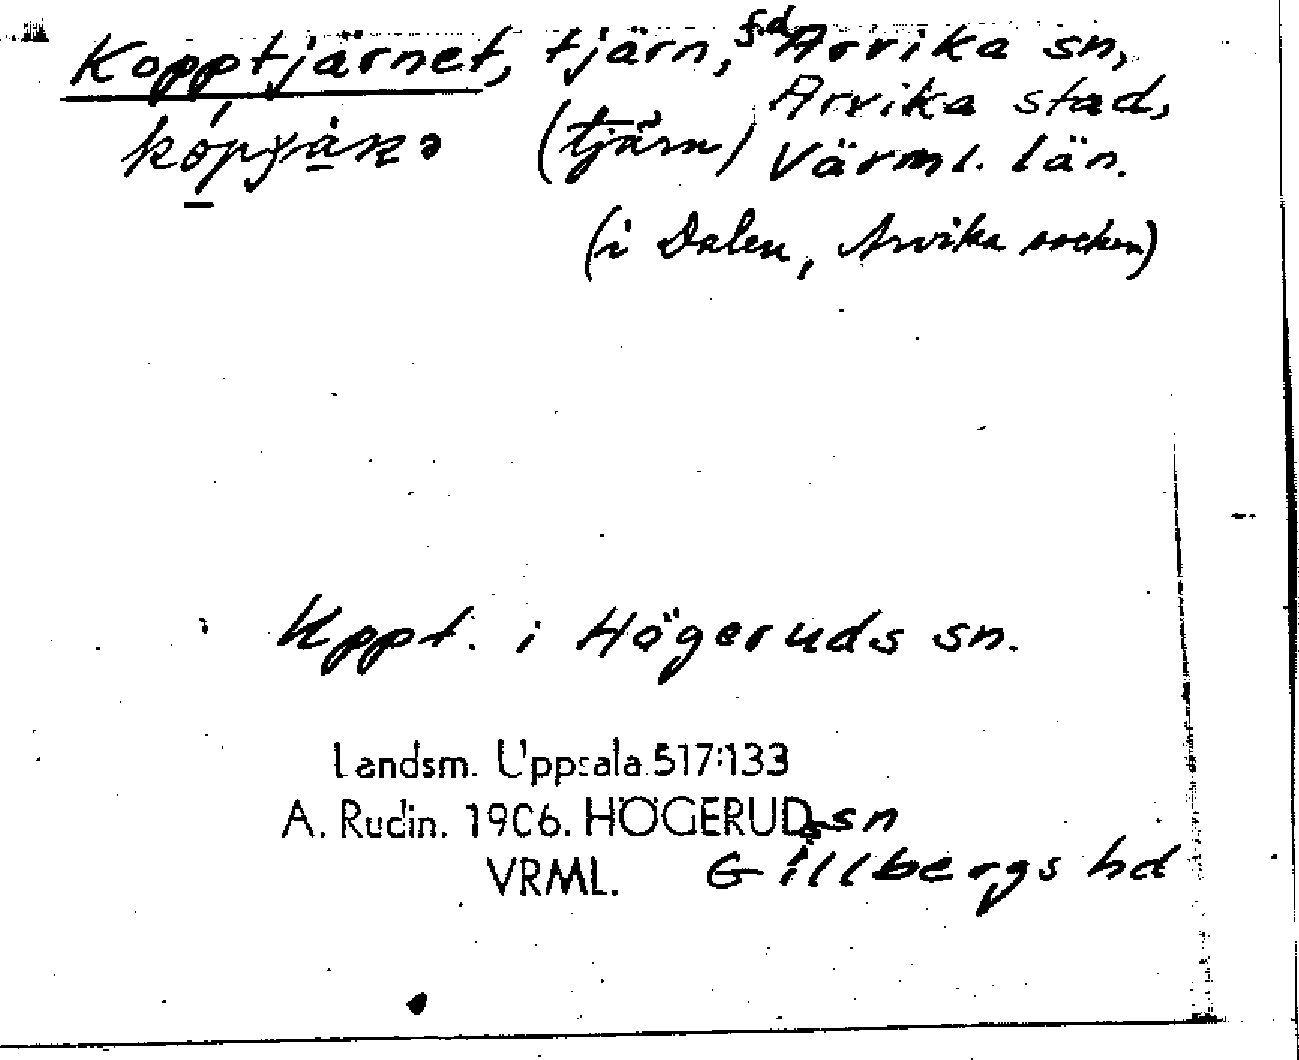 Kopptjärnet, tjärn, fd Arvika sn,
Arvika stad,
(tjärn) Värml. län.
(i Dalen, Arvika socken)
Kppt. i Högeruds sn.
Landsm. Uppsala 517:133
A. Rudin. 1906. HÖGERUDs sn
VRML. Gillbergs hd